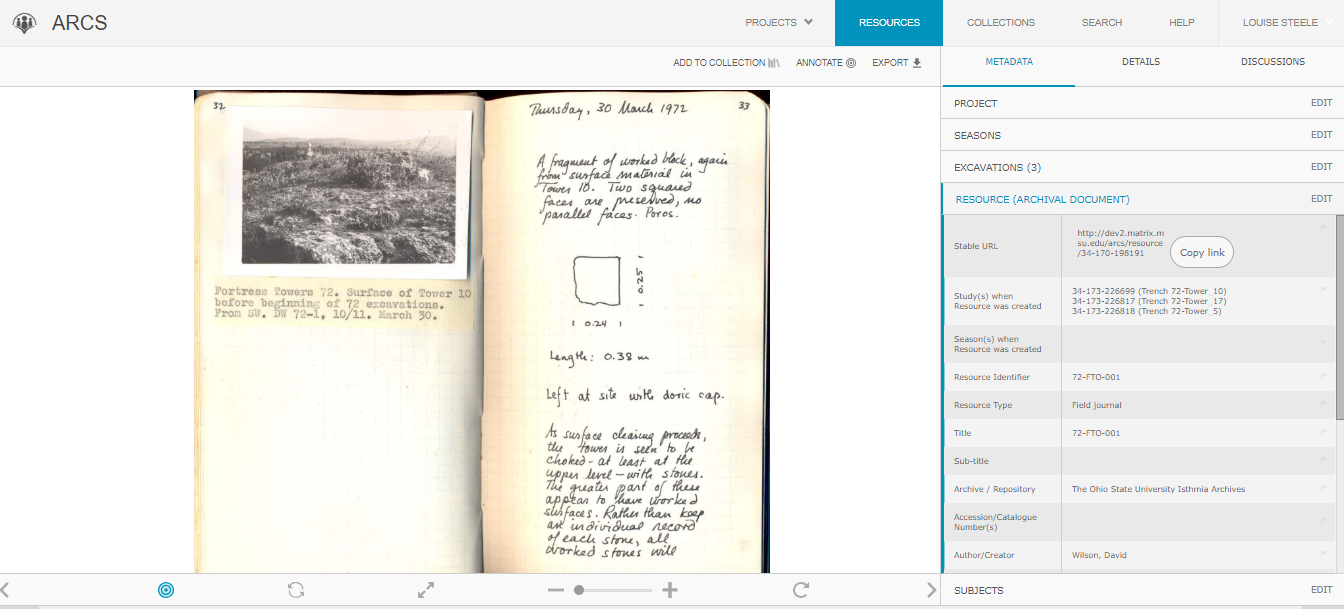 ARCS
PROJECTS
RESOURCES
COLLECTIONS
SEARCH
HELP
LOUISE STEELE
ADD TO COLLECTION
ANNOTATE
EXPORT
METADATA
DETAILS
DISCUSSIONS
32
Fortress Towers 72. Surface of Tower 10
before beginning of 72 excavations.
From SW. DW 72-1, 10/11. March 30.
Thursday, 30 March 1972
33
A fragment of worked block, again
from surface material in
Tower 10. Two squared
faces are preserved, no
parallel faces. Poros.
0.25
0.24
Length: 0.38 m
Left at site with doric cap.
As surface clearing proceeds,
the tower is seen to be
choked - at least at the
upper level - with stones.
The greater part of these
appear to have worked
surfaces. Rather than keep
an individual record
of each stone, all
worked stones will
PROJECT
EDIT
SEASONS
EDIT
EXCAVATIONS (3)
EDIT
RESOURCE (ARCHIVAL DOCUMENT)
EDIT
Stable URL
http://dev2.matrix.m
su.edu/arcs/resource
/34-170-198191
Copy link
Study(s) when
Resource was created
34-173-226699 (Trench 72-Tower_10)
34-173-226817 (Trench 72-Tower_17)
34-173-226818 (Trench 72-Tower_5)
Season(s) when
Resource was created
Resource Identifier
72-FTO-001
Resource Type
Field journal
Title
72-FTO-001
Sub-title
Archive / Repository
The Ohio State University Isthmia Archives
Accession/Catalogue
Number(s)
Author/Creator
Wilson, David
SUBJECTS
EDIT